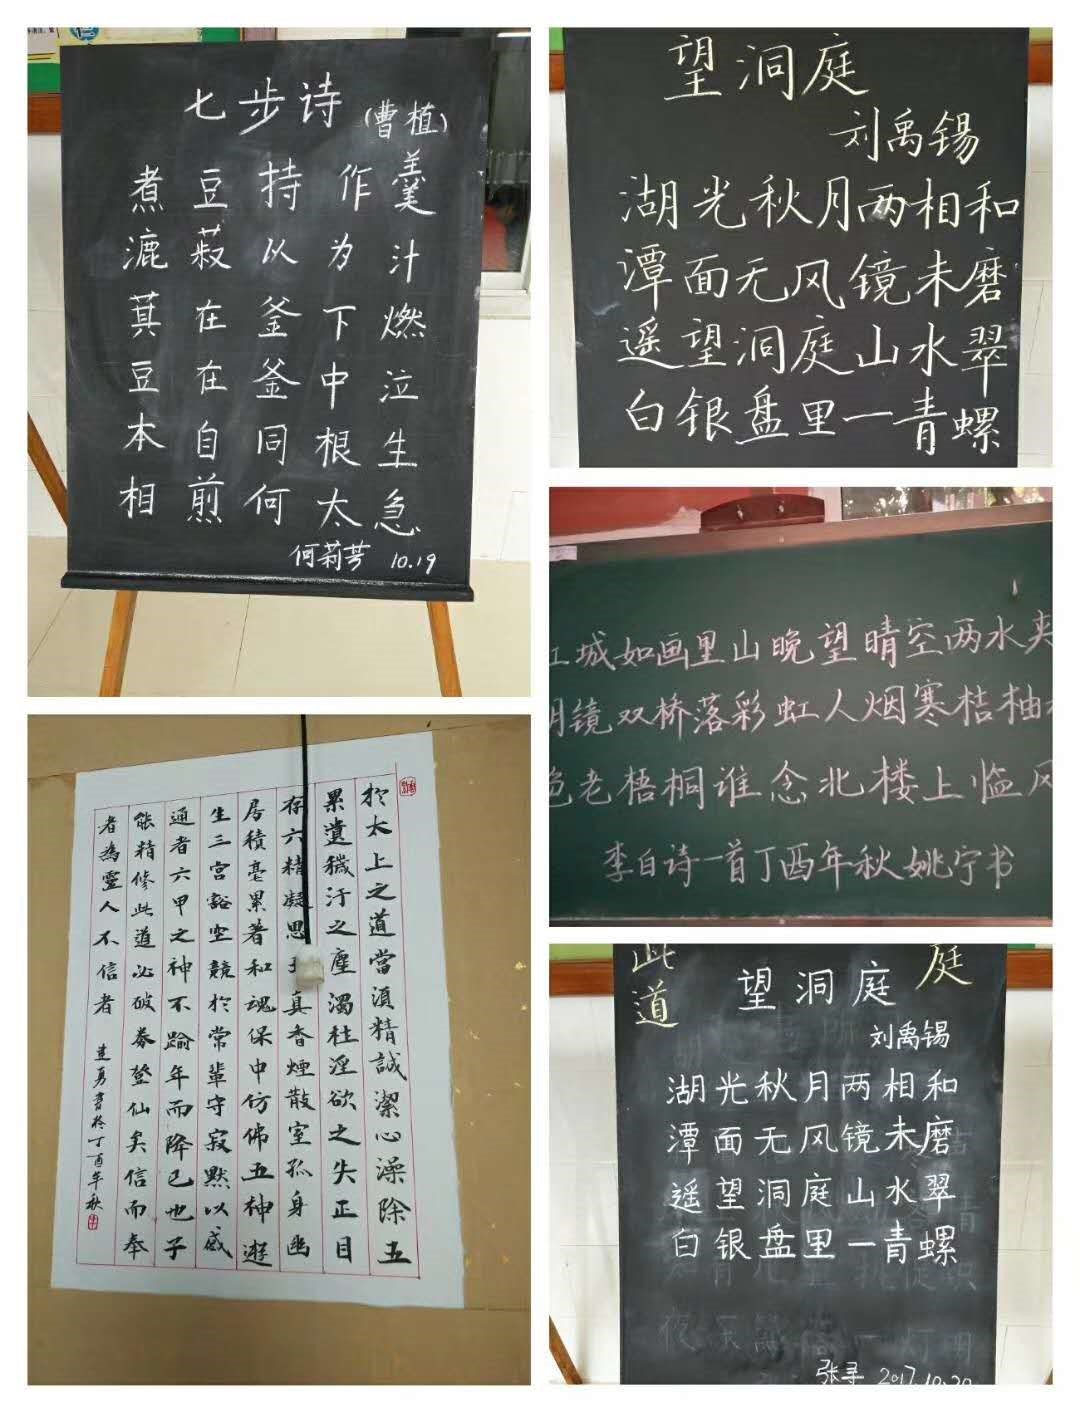 七步诗 (曹植)
煮豆持作羹
漉菽以为汁
萁在釜下燃
豆在釜中泣
本自同根生
相煎何太急
何莉芳 10.19
望洞庭
刘禹锡
湖光秋月两相和
潭面无风镜未磨
遥望洞庭山水翠
白银盘里一青螺
江城如画里山晚望晴空两水夹
明镜双桥落彩虹人烟寒桔柚
色老梧桐谁念北楼上临风
李白诗一首丁酉年秋姚宁书
於太上之道當湏精誠潔心澡除五
累遺穢汙之塵濁杜淫欲之失正目
存六精凝思玉真香煙散室孤身幽
房積毫累著和魂保中仿佛五神遊
生三宮豁空競於常輩守寂默以感
通者六甲之神不踰年而降已也子
能精修此道必破券登仙矣信而奉
者為靈人不信者 建勇書於丁酉年秋
此道
庭
望洞庭
刘禹锡
湖光秋月两相和
潭面无风镜未磨
遥望洞庭山水翠
白银盘里一青螺
张寻 2017.10.20